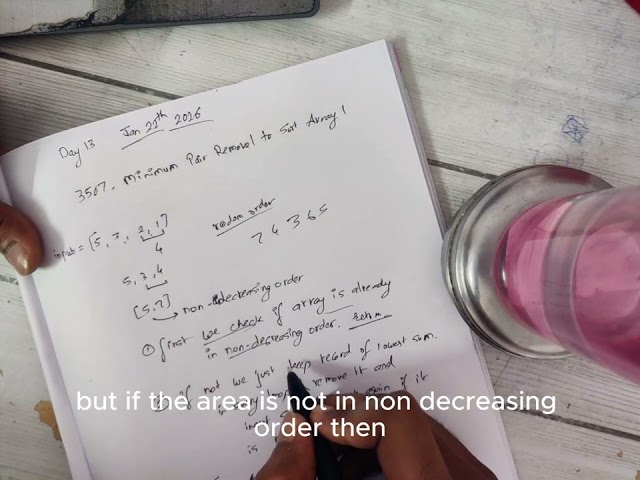 Day 13 Jan 22th 2026
3507. Minimum Pair Removal to Sort Array 1
input = [5, 3, 2, 1]
4
random order
7 4 3 6 5
5, 3, 4
[5, 7] non-decreasing order
① first we check if array is already
in non-decreasing order. return
② if not we just keep record of lowest sum.
remove it and
again if it
is
but if the area is not in non decreasing
order then